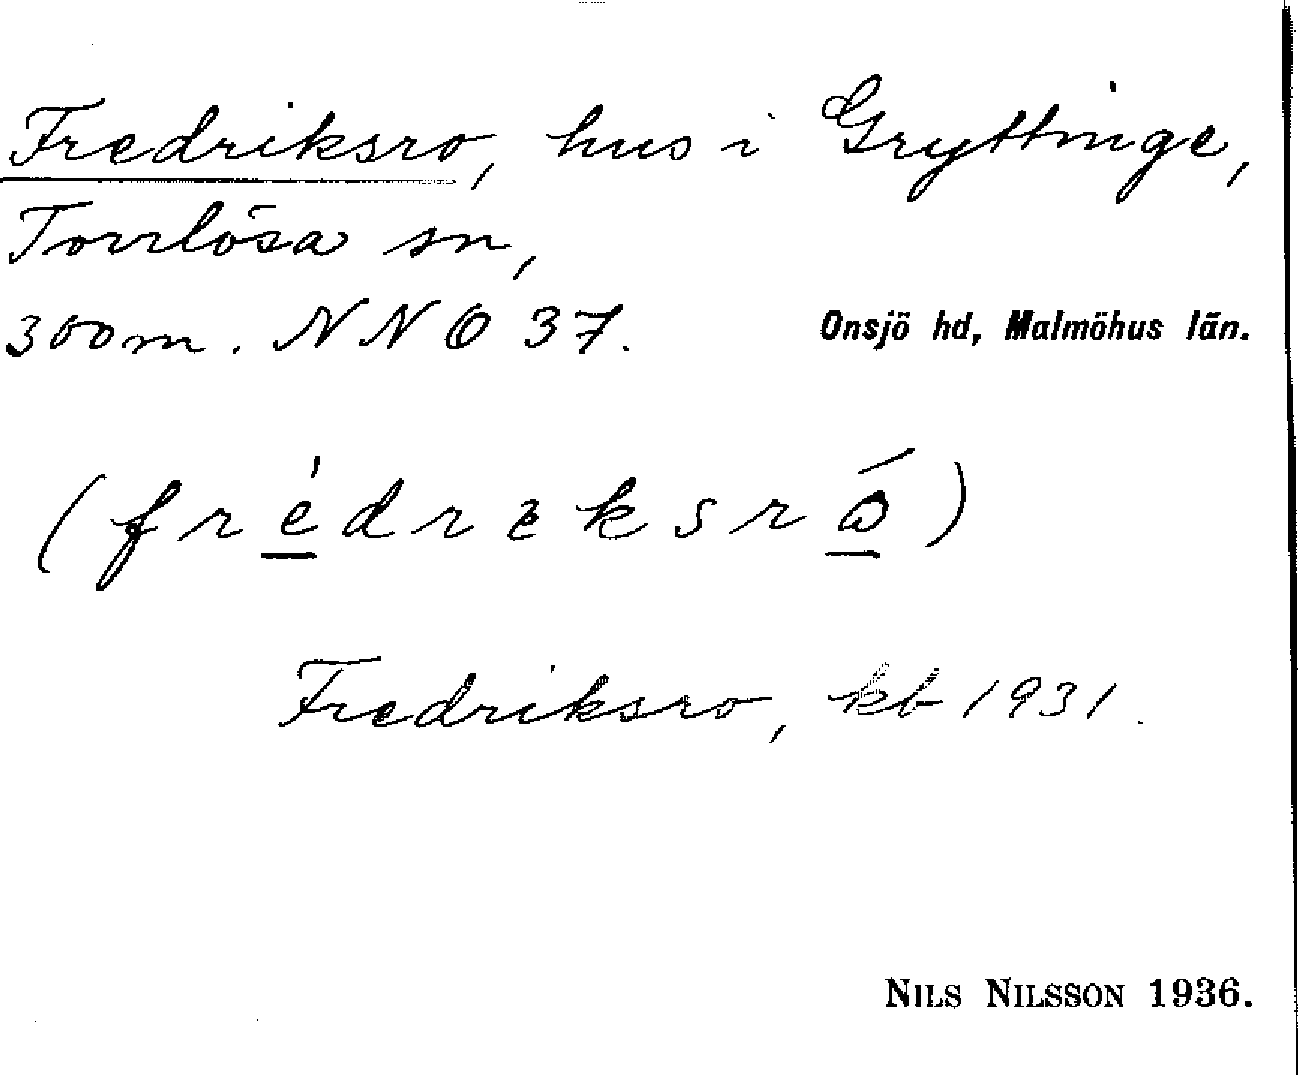 Fredriksro, hus i Gryttinge,
Torrlösa sn,
300 m. NNO 37. Onsjö hd, Malmöhus län.
(frédrəksró)
Fredriksro, kb 1931.
NILS NILSSON 1936.